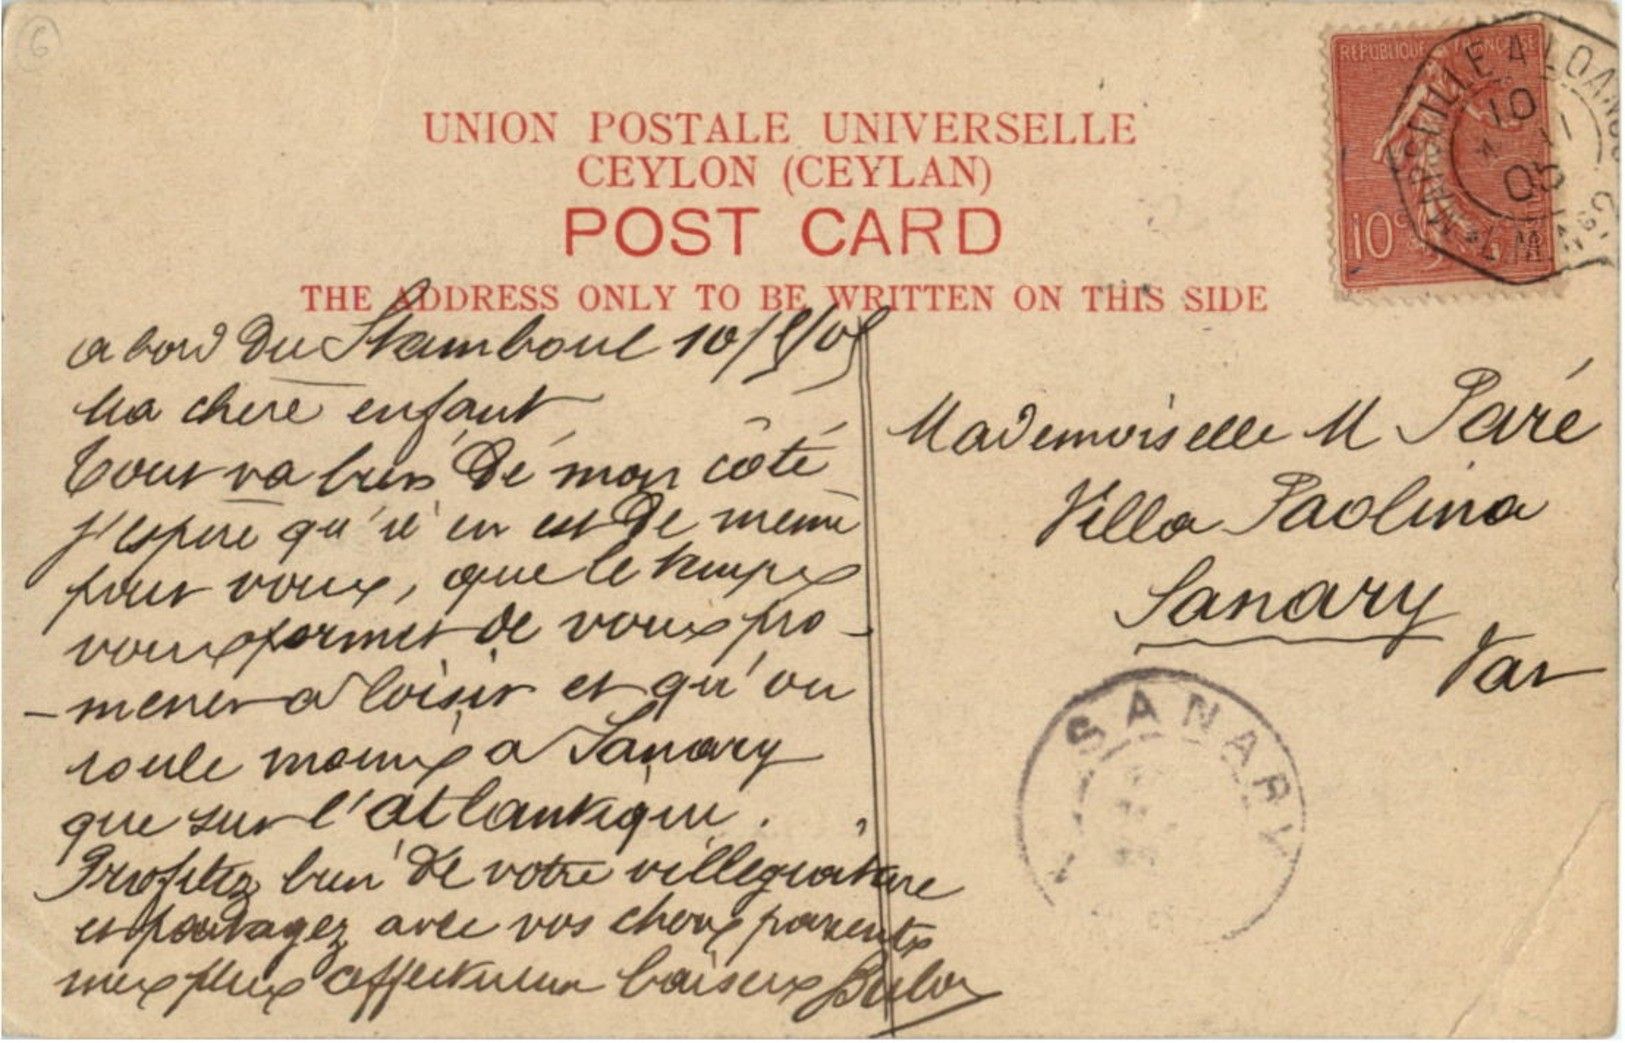 UNION POSTALE UNIVERSELLE
CEYLON (CEYLAN)
POST CARD
THE ADDRESS ONLY TO BE WRITTEN ON THIS SIDE
REPUBLIQUE FRANÇAISE
10c
MARSEILLE A LOANGO
10
05
a bord du Stamboul 10/5/05
Ma chere enfant
Tout va bien de mon côté
j'espere qu'il en est de meme
pour vous, que le temps
vous permet de vous pro-
-mener a loisir et qu'on
roule moins a Sanary
que sur l'atlantique.
Profitez bien de votre villegiature
et partagez avec vos chers parents
mes plus affectueux baisers
Mademoiselle M Paré
Villa Paolina
Sanary
Var
SANARY
6